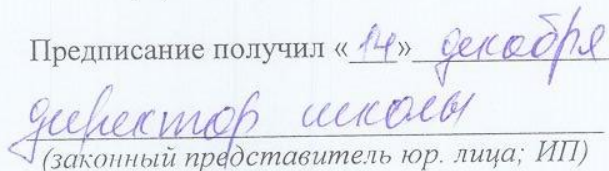 Предписание получил «14» декабря
директор школы
(законный представитель юр. лица; ИП)